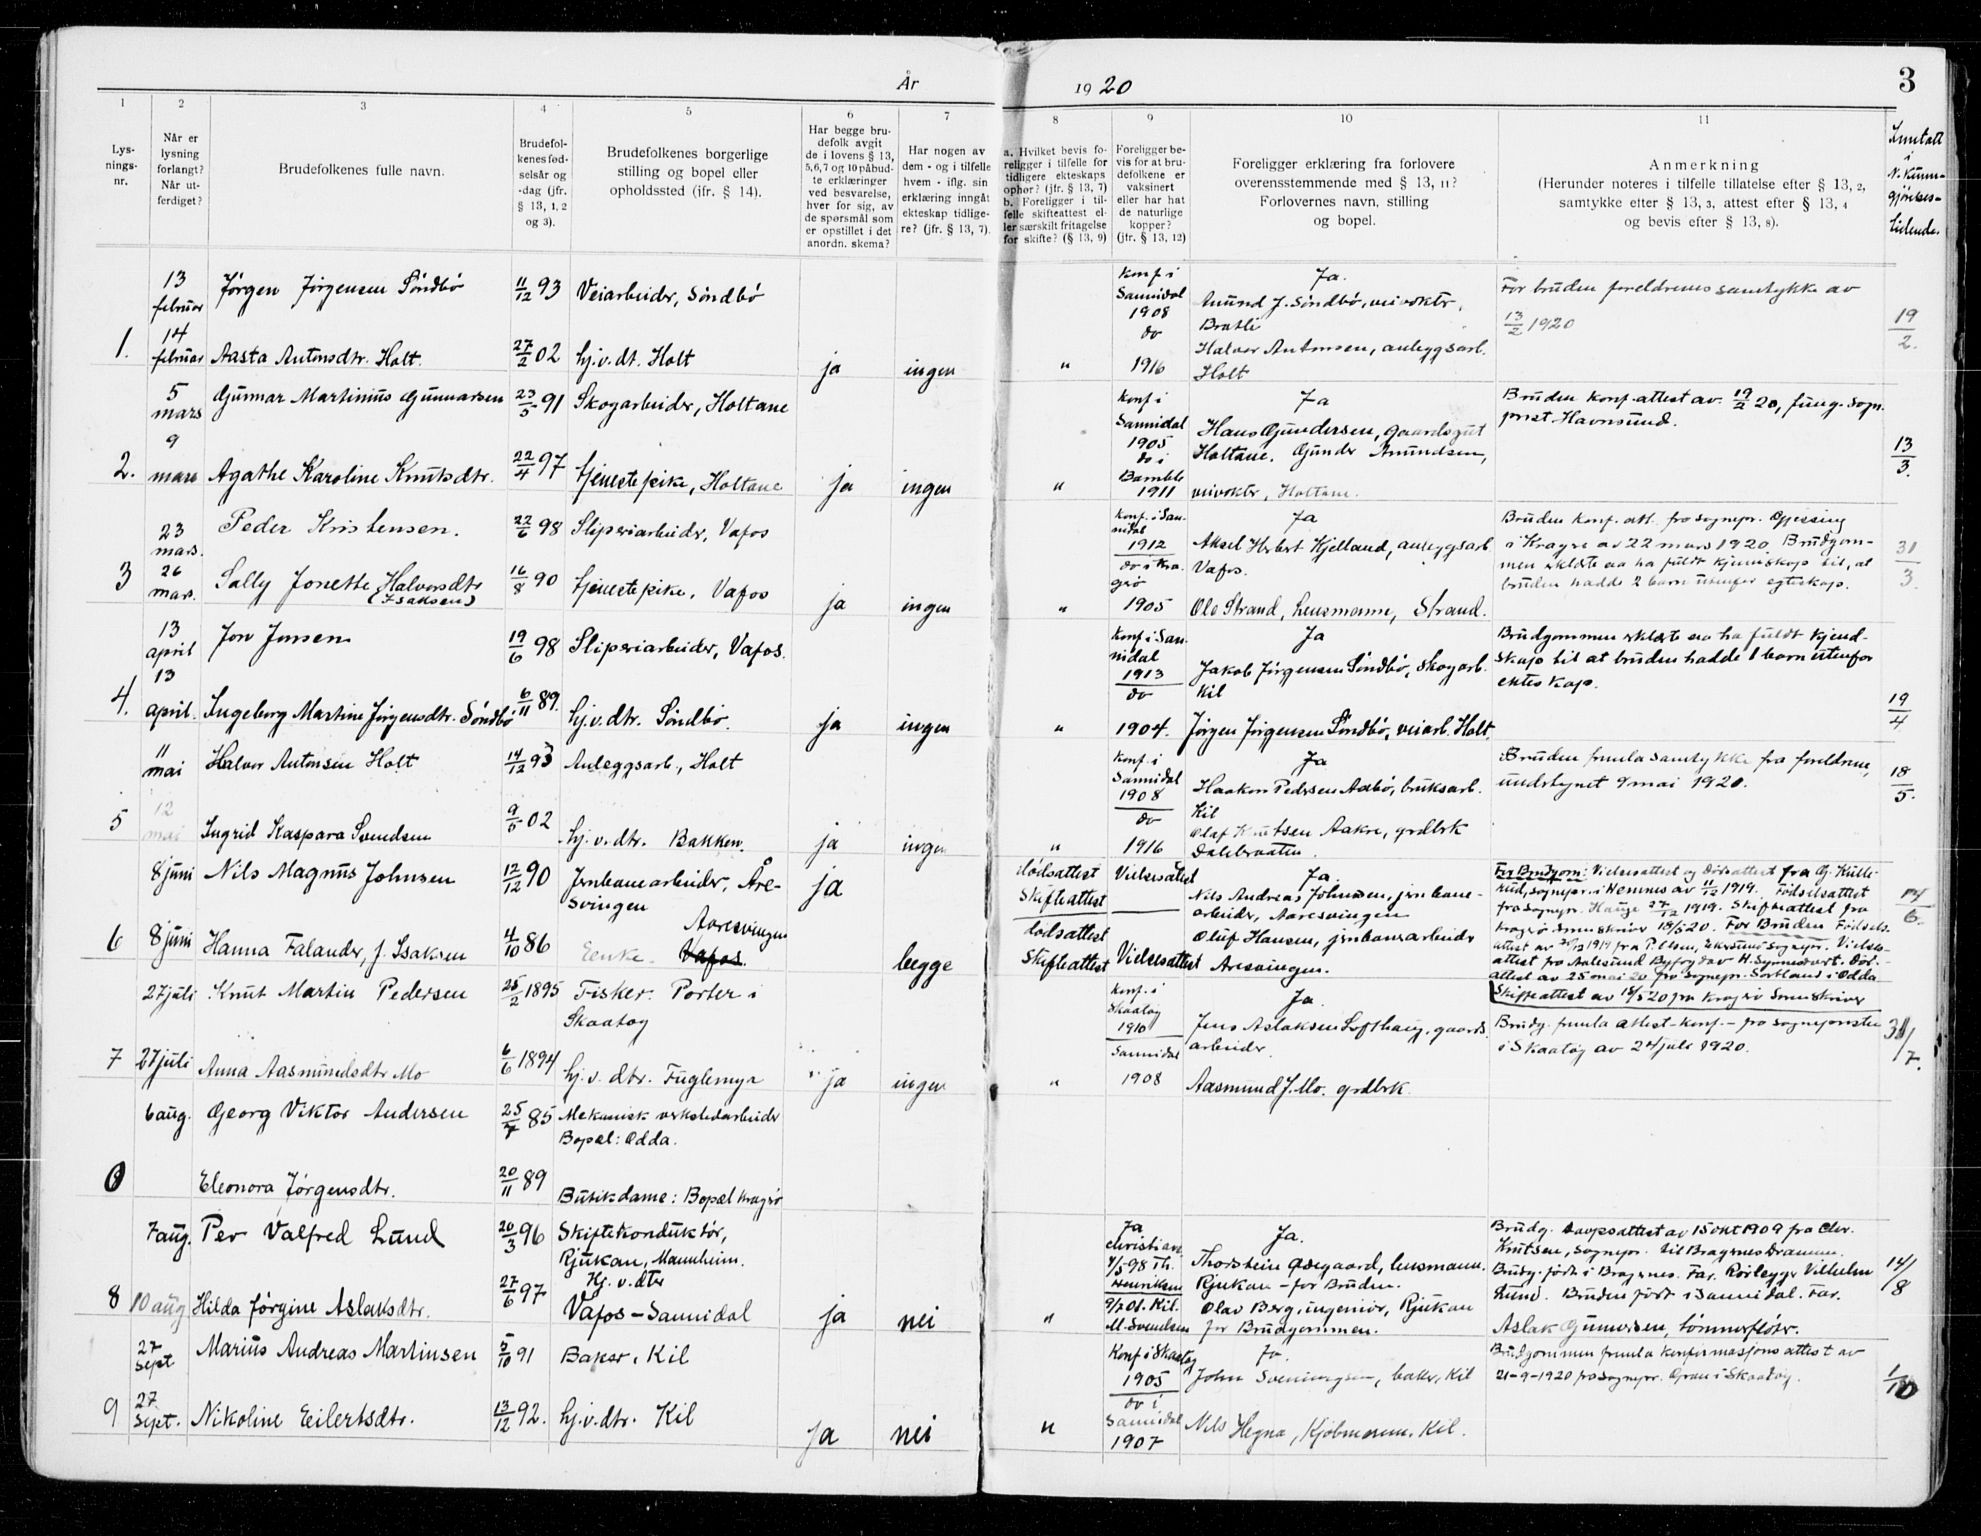 År 1920
3
1 2 3 4 5 6 7 8 9 10 11
Lysningsnr.
Når er lysning forlangt? Når utferdiget?
Brudefolkenes fulle navn.
Brudefolkenes fødselsår og -dag (jfr. § 13, 1, 2 og 3).
Brudefolkenes borgerlige stilling og bopel eller opholdssted (jfr. § 14).
Har begge brudefolk avgit de i lovens § 13, 5,6,7 og 10 påbudte erklæringer ved besvarelse, hver for sig, av de spørsmål som er opstillet i det anordn. skema?
Har nogen av dem - og i tilfelle hvem - iflg. sin erklæring inngåt ekteskap tidligere? (jfr. § 13, 7).
a. Hvilket bevis foreligger i tilfelle for tidligere ekteskaps ophør? (jfr. § 13, 7) b. Foreligger i tilfelle skifteattest eller særskilt fritagelse for skifte? (§ 13, 9)
Foreligger bevis for at brudefolkene er vaksinert eller har hat de naturlige kopper? (jfr. § 13, 12)
Foreligger erklæring fra forlovere overensstemmende med § 13, 11? Forlovernes navn, stilling og bopel.
Anmerkning (Herunder noteres i tilfelle tillatelse efter § 13, 2, samtykke efter § 13, 3, attest efter § 13, 4 og bevis efter § 13, 8).
Inntatt i N. Kunngjørelses-tidende.
13 februar Jørgen Jørgensen Søndbø 11/12 93 Veiarbeider, Søndbø
Konf i Sannidal 1908 Ja. Amund J. Søndbø, veivokter, Bratli
For bruden foreldrenes samtykke av 13/2 1920
1. 14 februar Aasta Antonsdtr. Holt. 27/2 02 hj.v.dt. Holt ja ingen
" do 1916 Halvor Antonsen, anleggsarb. Holt
19/2.
5 mars Gunnar Martinius Gunnarsen 23/5 91 Skogarbeider, Holtane
Konf i Sannidal 1905 Ja Hans Gundersen, gaardsgut Holtane.
Bruden konf.attest av 19/2 20, fung. sogn.prest Havnsund.
2. 9 mars Agathe Karoline Knutsdtr. 22/4 97 tjenestepike, Holtane ja ingen
" do i Bamble 1911 Gunder Amundsen, veivokter, Holtane.
13/3.
23 mars. Peder Kristensen. 22/6 98 Sliperiarbeider, Vafos
Konf. i Sannidal 1912 Ja Aksel Herbert Kjelland, anleggsarb Vafos.
Bruden konf. att. fra sognepr. Gjessing i Kragerø av 22 mars 1920 Brudgommen erklærte aa ha fuldt kjennskap til, at bruden hadde 2 barn utenfor egteskap.
3 26 mars. Sally Jonette Halvorsdtr (Isaksen) 16/8 90 tjenestepike, Vafos ja ingen
" do i Kragerø 1905 Ole Strand, Lensmann, Strand.
31/3.
13 april Jon Jonsen 19/6 98 Sliperiarbeider, Vafos.
Konf i Sannidal 1913 Ja Jakob Jørgensen Søndbø, skogarb. Kil
Brudgommen erklærte aa ha fuldt kjendskap til at bruden hadde 1 barn utenfor ekteskap.
4. 13 april. Ingeborg Martine Jørgensdtr. Søndbø 6/11 89. hj.v.dtr. Søndbø. ja ingen
" do 1904. Jørgen Jørgensen Søndbø, veiarb. Holt.
19/4
11 mai Halvor Antonsen Holt 14/12 93 Anleggsarb, Holt
Konf. i Sannidal 1908 Ja Haakon Pedersen Aabø, bruksarb. Kil
Bruden fremla samtykke fra foreldrene, undertegnet 9 mai 1920.
5 12 mai Ingrid Kaspara Svendsen 9/5 02 hj.v.dtr. Bakken. ja ingen
" do 1916 Olaf Knutsen Aakre, grdbrk Dalebraaten.
18/5.
8 juni Nils Magnus Johnsen 12/12 90 Jernbanearbeider, Åresvingen ja
dødsattest Skifteattest Vielsesattest Ja. Nils Andreas Johnsen, jernbanearbeider, Aaresvingen
For Brudgom: Vielsesattest og Dødsattest fra sognepr. i Hemnes av 11/12 1919. Fødselsattest fra sognepr. Hauge 27/12 1919. Skifteattest fra Kragerø Sorenskriver 18/5 20. For Bruden Fødselsattest av
6 8 juni Hanna Falander, f. Isaksen 4/10 86 Enke. Aaresvingen Vafos. begge
dødsattest Skifteattest Vielsesattest Oluf Hansen, jernbanearbeider Aresvingen.
Vielsesattest fra Aalesund Byfogd av Dødsattest av 25 mai 20 fra Sognepr. Sortland i Odda Skifteattest av 18/5 20 fra Kragerø Sorenskriver
14/6.
27 juli Knut Martin Pedersen 25/2 1895 Fisker. Porter i Skaatøy
Konf. i Skaatøy 1910 Ja. Jens Aslaksen Lofthaug, gaardsarbeider.
Brudg. fremla attest - konf. - fra sognepresten i Skaatøy av 24 juli 1920.
7 27 juli Anna Aasmundsdtr Mo 6/6 1894 hj.v.dtr. Fuglemyr " ja ingen
" Sannidal 1908 Aasmund J. Mo. grdbrk
31/7.
6 aug. Georg Viktor Andersen 25/7 85 Mekanisk verkstedarbeider Bopæl: Odda.
0 Eleonora Jørgensdtr. 20/11 89 Butikdame: Bopæl Kragerø
7 aug. Per Valfred Lund 20/3 96 Skiftekonduktør, Rjukan, Mannheim.
Ja Christian. 4/5-98 Th. Henriksen Ja. Thorstein Øsegaard, lensmann. Rjukan - for Bruden.
Brudg. Daapsattest av 15 okt 1909 fra Chr. Knutsen, sognepr. til Bragernes Drammen. Brudg. født i Bragernes. Far. Rørlegger Vilhelm Lund. Bruden født i Sannidal. Far. Aslak Gunersen, tømmerfløter.
8 10 aug Hilda Jørgine Aslaksdtr. 27/6 97 Hj. v. dtr Vafos - Sannidal ja nei
" Kil. M. Svendsen Olav Berg, ingeniør, Rjukan for Brudgommen.
14/8
27 Sept Marius Andreas Martinsen 5/10 91 Baker, Kil
Konf i Skaatøy 1905 Ja. John Sveinungsen, baker, Kil
Brudgommen fremla konfirmasjonsattest av 21-9-1920 fra sognepr. Gran i Skaatøy.
9 27 Sept. Nikoline Eilertsdtr. 13/12 92. hj.v.dtr. Kil ja nei
" do i Sannidal 1907 Nils Hegna, Kjøbmann. Kil.
1/10